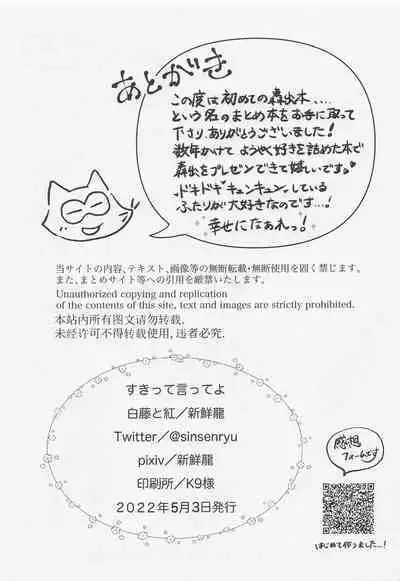 あとがき
この度は初めての轟出本....
という名のまとめ本をお手に取って
下さり、ありがとうございました!
数年かけて ようやく好きを詰めた本で
轟出をプレゼンできて嬉しいです。
ドキドキキュンキュンしている
ふたりが大好きなのです...!
幸せになぁれっ!
当サイトの内容、テキスト、画像等の無断転載・無断使用を固く禁じます。
また、まとめサイト等への引用を厳禁いたします。
Unauthorized copying and replication
of the contents of this site, text and images are strictly prohibited.
本站内所有图文请勿转载.
未经许可不得转载使用,违者必究.
すきって言ってよ
白藤と紅/新鮮龍
Twitter/@sinsenryu
pixiv/新鮮龍
印刷所/K9様
2022年5月3日発行
感想
フォームです
はじめて作りました...!